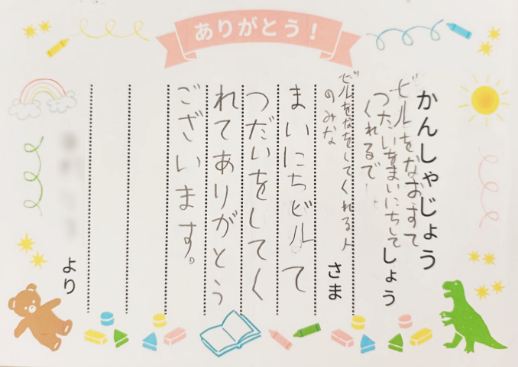 ありがとう!
かんしゃじょう
ビルをなおすて
つだいをまいにちして
くれるで
しょう
ビルをなをしてくれる人
のみな
さま
まいにちビルて
つだいをしてく
れてありがとう
ございます。
より